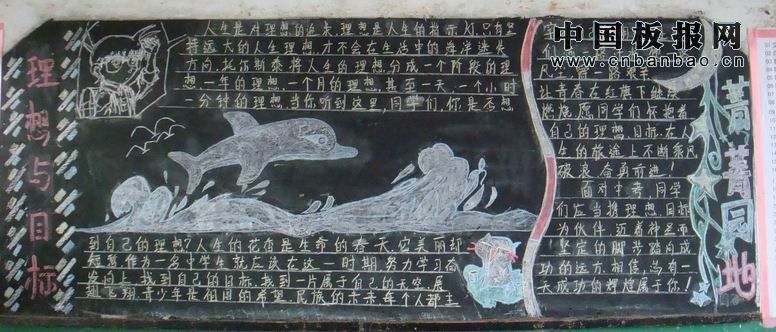 中国板报网
www.cnbanbao.cn
理想与目标
人生是对理想的追求,理想是人生的指示灯,只有坚
持远大的人生理想,才不会在生活中的海洋迷失
方向,托尔斯泰将人生的理想分成一个阶段的理
想一年的理想,一个月的理想,甚至一天,一个小时
一分钟的理想,当你听到这里,同学们,你是否想
到自己的理想?人生的花季是生命的春天,它美丽却
短暂作为一名中学生就应该在这一时期,努力学习奋
发向上,找到自己的目标,找到一片属于自己的天空,展
翅飞翔,青少年是祖国的希望,民族的未来每个人都主
让青春在红旗下继续
燃烧愿同学们怀抱着
自己的理想目标,在人
生的旅途上不断乘风
破浪奋勇前进!
面对中考,同学
们应当携理想目标
为伙伴,迈着神圣而
坚定的脚步踏向成
功的远方,相信,总有一
天成功的辉煌属于你!
菁菁园地